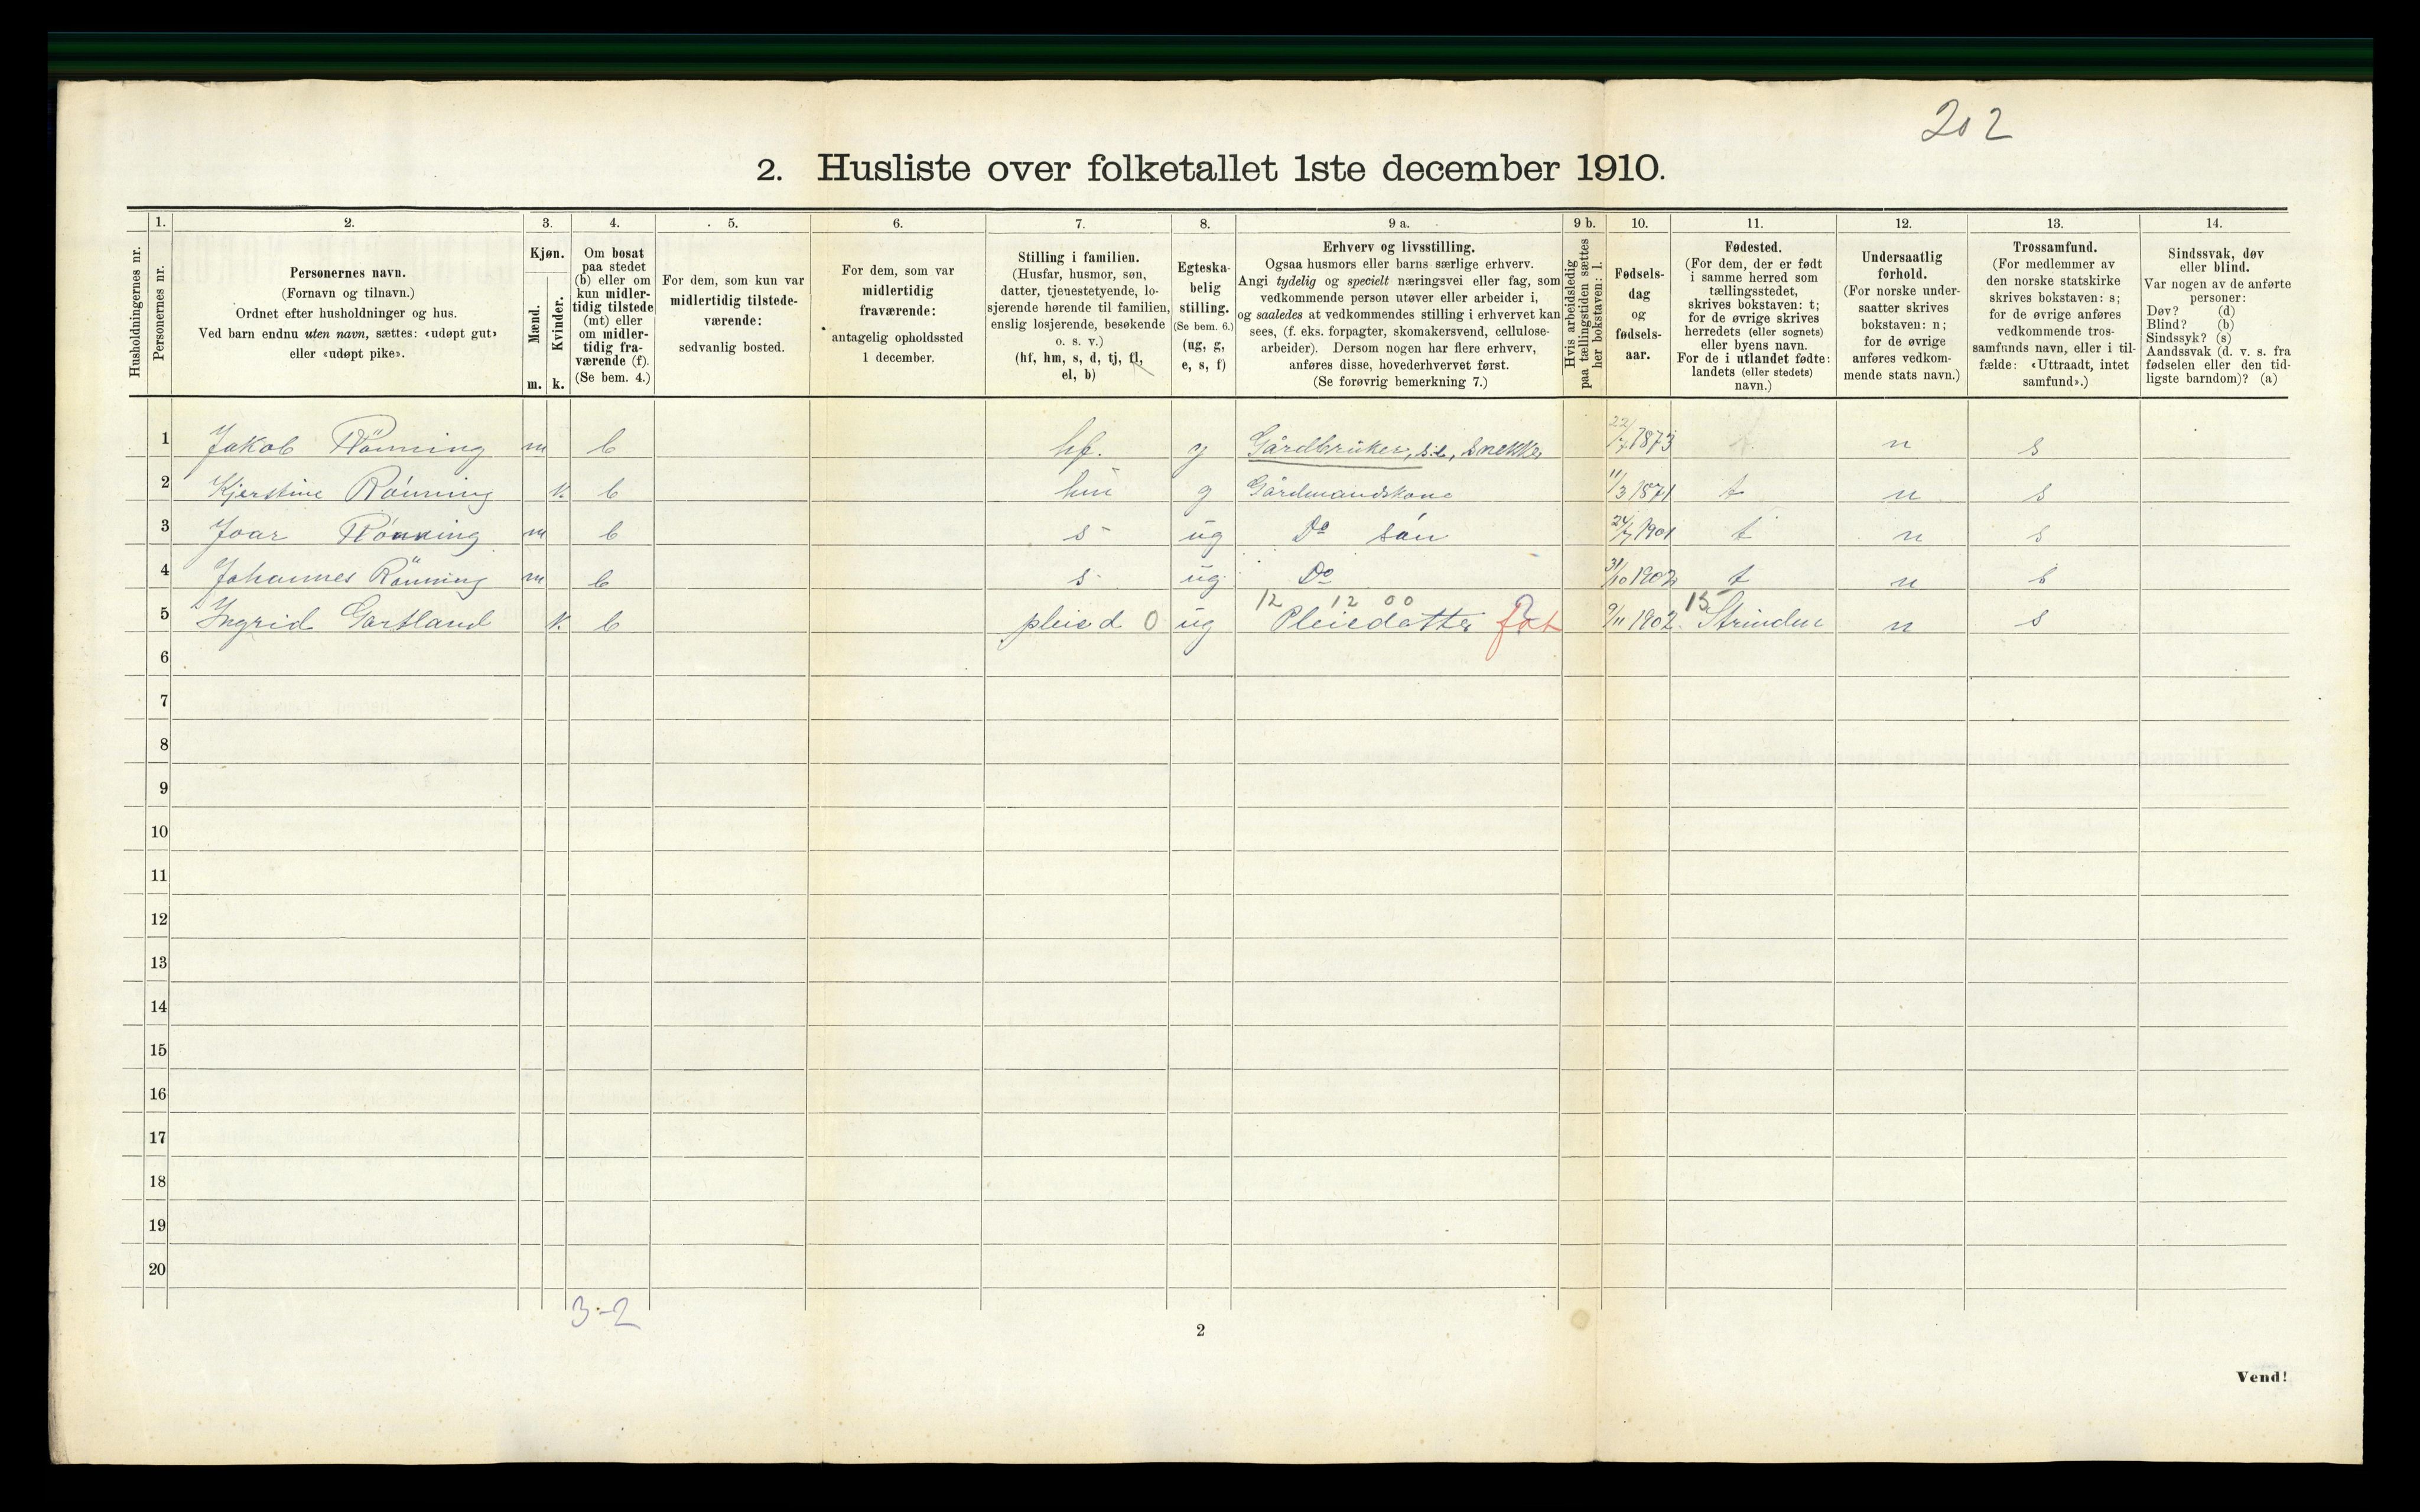 202
2. Husliste over folketallet 1ste december 1910.
1. 2. 3. 4. 5. 6. 7. 8. 9 a. 9 b. 10. 11. 12. 13. 14.
Husholdningernes nr.
Personernes nr.
Personernes navn.
(Fornavn og tilnavn.)
Ordnet efter husholdninger og hus.
Ved barn endnu uten navn, sættes: «udøpt gut»
eller «udøpt pike».
Kjøn.
Mænd.
Kvinder.
m. k.
Om bosat
paa stedet
(b) eller om
kun midler-
tidig tilstede
(mt) eller
om midler-
tidig fra-
værende (f).
(Se bem. 4.)
For dem, som kun var
midlertidig tilstede-
værende:
sedvanlig bosted.
For dem, som var
midlertidig
fraværende:
antagelig opholdssted
1 december.
Stilling i familien.
(Husfar, husmor, søn,
datter, tjenestetyende, lo-
sjerende hørende til familien,
enslig losjerende, besøkende
o. s. v.)
(hf, hm, s, d, tj, fl,
el, b)
Egteska-
belig
stilling.
(Se bem. 6.)
(ug, g,
e, s, f)
Erhverv og livsstilling.
Ogsaa husmors eller barns særlige erhverv.
Angi tydelig og specielt næringsvei eller fag, som
vedkommende person utøver eller arbeider i,
og saaledes at vedkommendes stilling i erhvervet kan
sees, (f. eks. forpagter, skomakersvend, cellulose-
arbeider). Dersom nogen har flere erhverv,
anføres disse, hovederhvervet først.
(Se forøvrig bemerkning 7.)
Hvis arbeidsledig
paa tællingstiden sættes
her bokstaven: l.
Fødsels-
dag
og
fødsels-
aar.
Fødested.
(For dem, der er født
i samme herred som
tællingsstedet,
skrives bokstaven: t;
for de øvrige skrives
herredets (eller sognets)
eller byens navn.
For de i utlandet fødte:
landets (eller stedets)
navn.)
Undersaatlig
forhold.
(For norske under-
saatter skrives
bokstaven: n;
for de øvrige
anføres vedkom-
mende stats navn.)
Trossamfund.
(For medlemmer av
den norske statskirke
skrives bokstaven: s;
for de øvrige anføres
vedkommende tros-
samfunds navn, eller i til-
fælde: «Uttraadt, intet
samfund».)
Sindssvak, døv
eller blind.
Var nogen av de anførte
personer:
Døv? (d)
Blind? (b)
Sindssyk? (s)
Aandssvak (d. v. s. fra
fødselen eller den tid-
ligste barndom)? (a)
1 Jakob Rönning m b hf. g Gårdbrüker, s.e, Snekker 22/7 1873 n s
2 Kjerstine Rönning k. b hm g Gårdmandskone 11/3 1871 t n s
3 Joar Rönning m b s ug Do sön 24/7 1901 t n s
4 Johannes Rönning m b s ug Do 31/10 1902 t n s
12 12 00 15
5 Ingrid Gartland k. b pleie d 0 ug Pleiedatter fat 9/11 1902 Strinden n s
6
7
8
9
10
11
12
13
14
15
16
17
18
19
20
3-2
2
Vend!